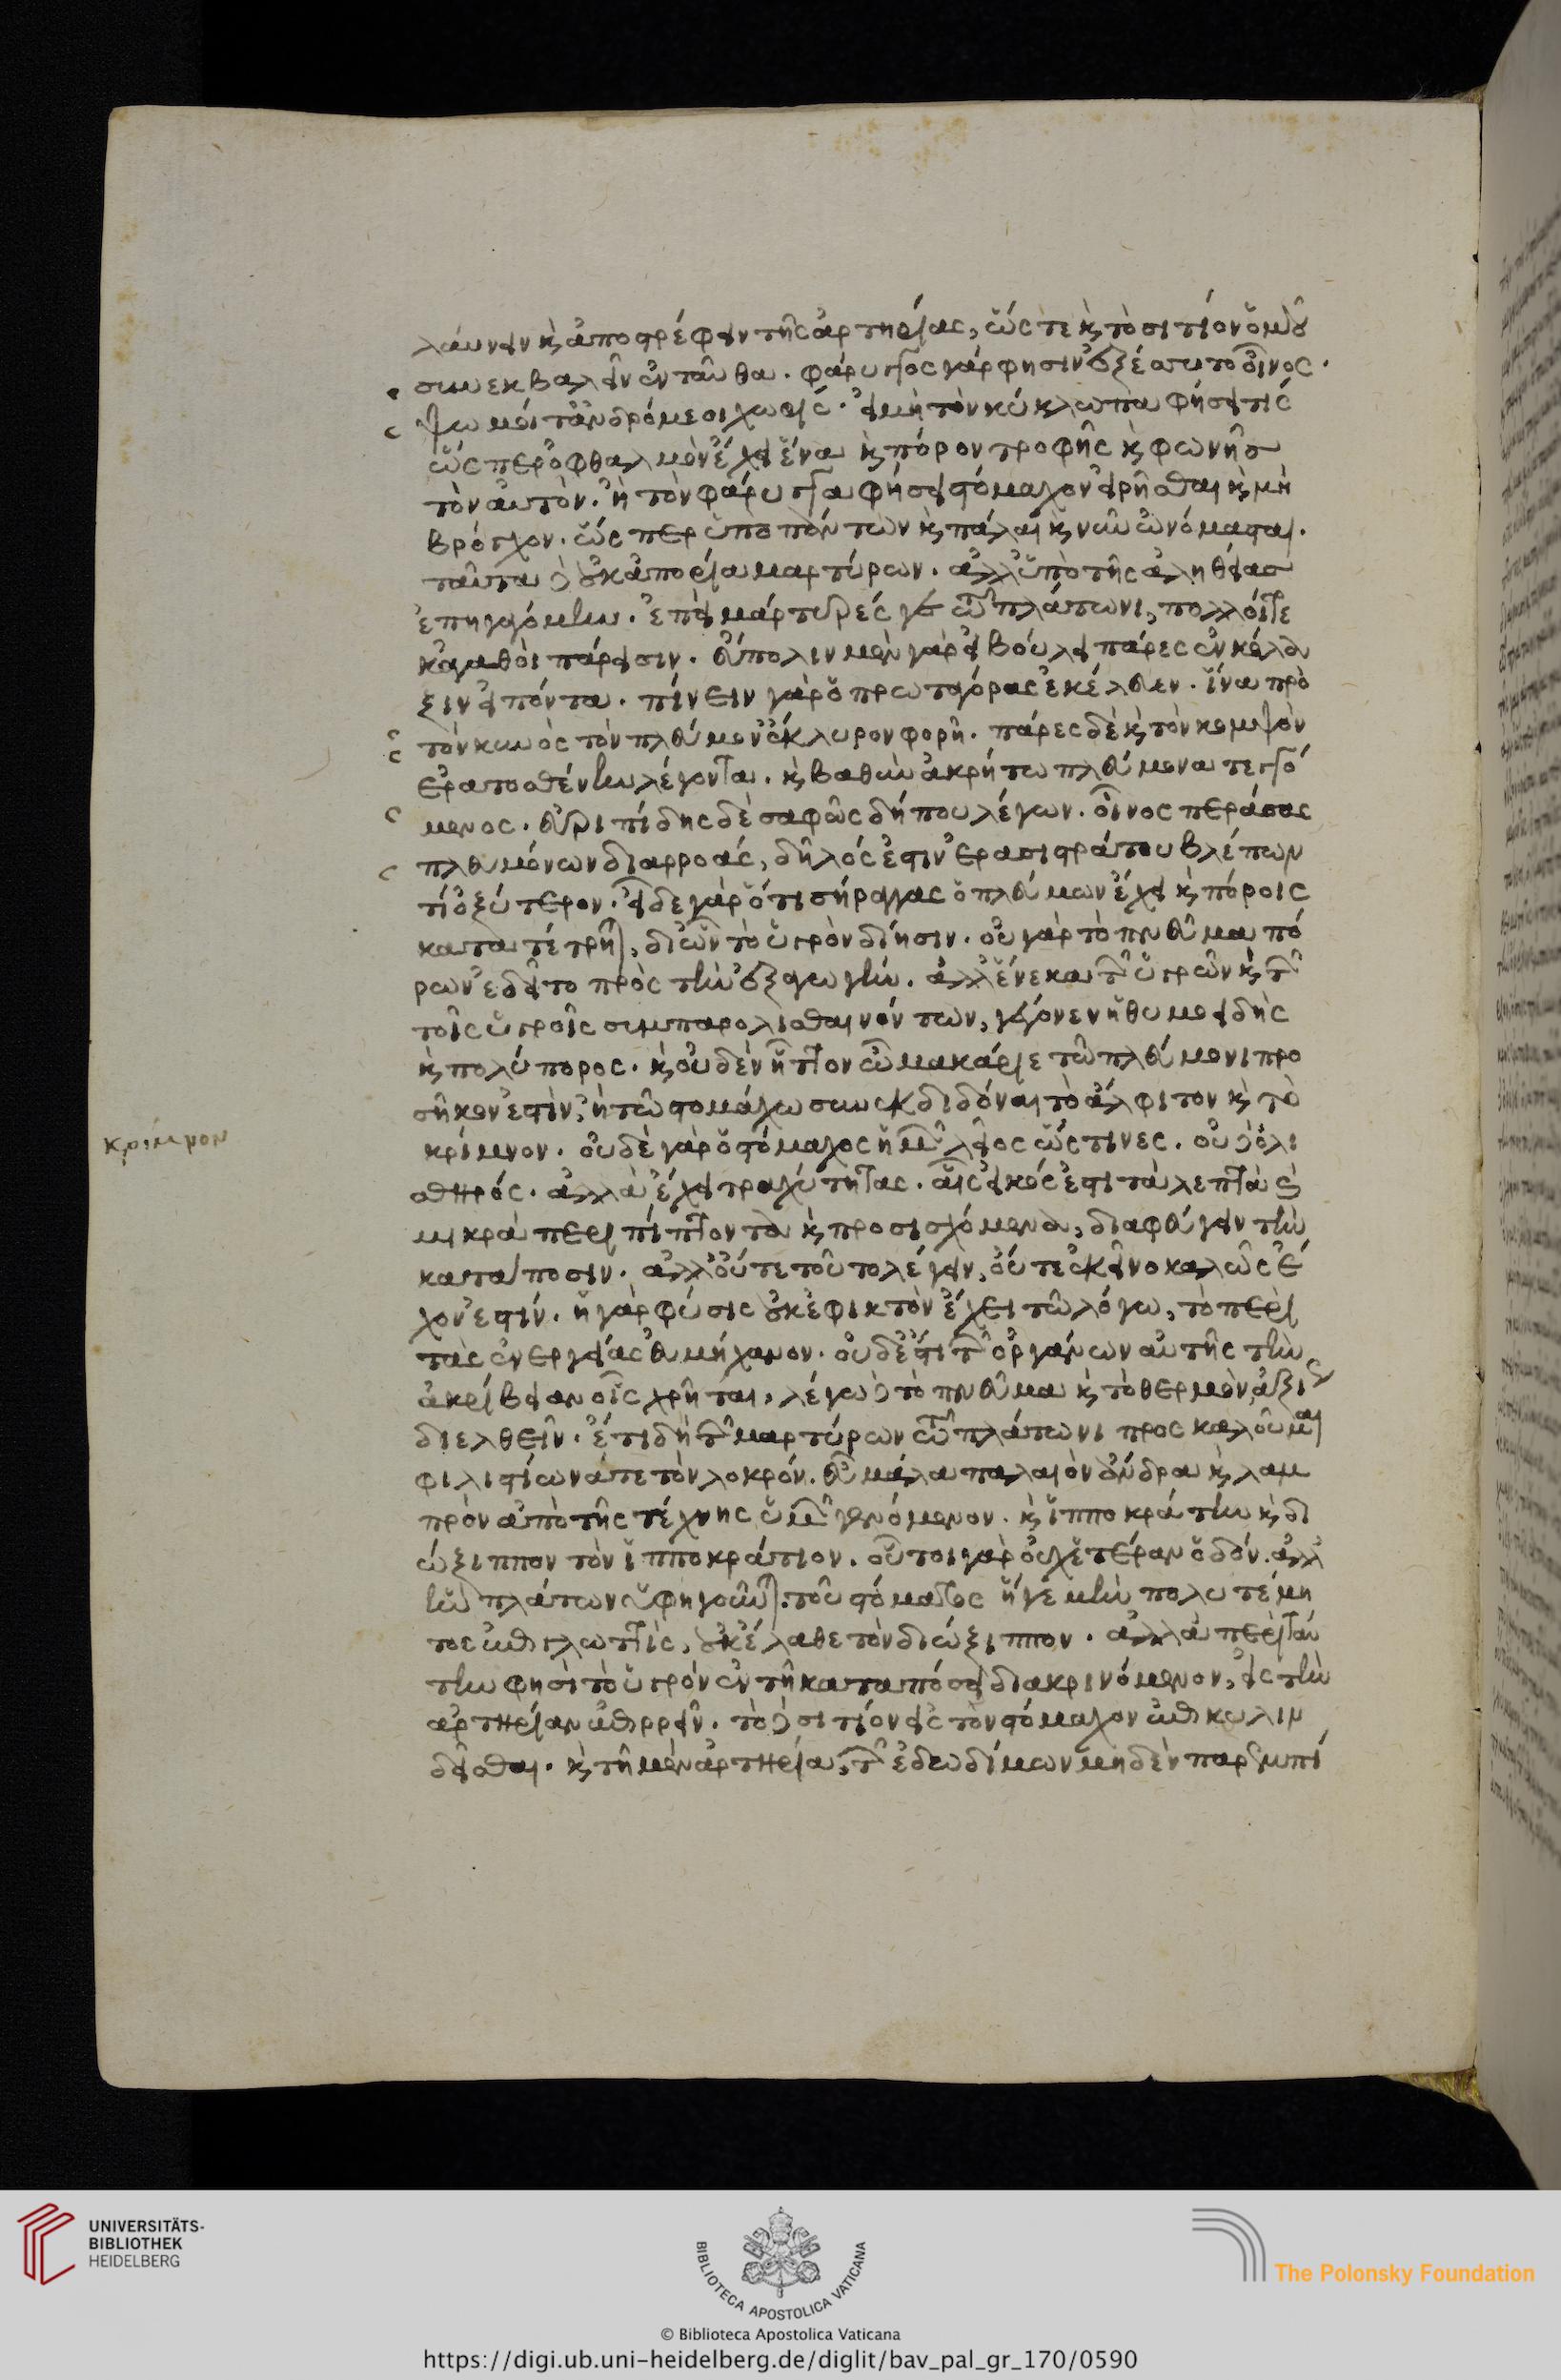 λαύνειν κ̀ ἀποστρέφειν τῆς ἀρτηρίας, ὥς τε κ̀ τὸ σιτίον ὁμοῦ
συνεκβαλεῖν ἐνταῦθα. φάρυγγος γάρ φησιν ἐξέσσυτο οἶνος.
ψωμοί τ' ἀνδρόμεοι χωρίς. εἰ μὴ τὸν κύκλωπα φήσει τίς
ὥς περ ὀφθαλμὸν ἔχει ἕνα κ̀ πόρον τροφῆς κ̀ φωνῆς
τὸν αὐτὸν. ἢ τὸν φάρυγγα φήσει στόμαχον εἰρῆσθαι κ̀ μὴ
βρόγχον. ὥς περ ὑπο πάντων κ̀ πάλαι κ̀ νῦν ὠνόμασται.
ταῦτα δ' οὐκ ἀπορία μαρτύρων. ἀλλ' ὑπὸ τῆς ἀληθείας
ἐπηγαγόμην. ἐπεὶ μάρτυρές γε τῶ πλάτωνι, πολλοί τε
κἀγαθοὶ πάρεισιν. εὔπολιν μὲν γὰρ εἰ βούλει πάρες ἐν κόλα
ξιν εἰπόντα. πίνειν γὰρ ὁ πρωταγόρας ἐκέλευεν. ἵνα πρὸ
τὸν κυνὸς τὸν πλεύμον' ἔκλυρον φορῆ. πάρες δὲ κ̀ τὸν κομψὸν
ἐρατοσθένην λέγοντα. κ̀ βαθὺν ἀκρήτω πλεύμονα τεγγό
μενος. εὐριπίδης δὲ σαφῶς δήπου λέγων. οἶνος περάσας
πλευμόνων διαρροάς, δῆλός ἐστιν ἐρασιστράτου βλέπων
τι ὀξύτερον. εἶδε γὰρ ὅτι σήραγγας ὁ πλεύμων ἔχει κ̀ πόροις
κατατέτρηται, δι' ὧν τὸ ὑγρὸν δίησιν. οὐ γὰρ τὸ πνεῦμα πό
ρων ἐδεῖτο πρὸς τὴν ἐξαγωγήν. ἀλλ' ἕνεκα τῶν ὑγρῶν κ̀ τῶν
τοῖς ὑγροῖς συμπαρολισθαινόντων, γέγονεν ἠθμοειδὴς
κ̀ πολύπορος. κ̀ οὐδὲν ἧττον ὦ μακάριε τῶ πλεύμονι προ
σῆκον ἐστὶν, ἢ τῶ στομάχω συνεκδιδόναι τὸ ἄλφιτον κ̀ τὸ
κρίμνον
κρίμνον. οὐδὲ γὰρ ὁ στόμαχος ἡμῶν λεῖος ὥς τινες. οὐδ' ὀλι
σθηρός. ἀλλὰ ἔχει τραχύτητας. αἷς εἰκός ἐστι τὰ λεπτὰ κ̀
μικρὰ περιπίπτοντα κ̀ προσισχόμενα, διαφεύγειν τὴν
κατάποσιν. ἀλλ' οὔτε τοῦτο λέγειν, οὔτε ἐκεῖνο καλῶς ἔ
χον ἐστίν. ἡ γὰρ φύσις οὐκ ἐφικτὸν ἔχει τῶ λόγω, τὸ περὶ
τὰς ἐνεργείας εὐμήχανον. οὐδὲ ἔστι τῶν ὀργάνων αὐτῆς τὴν
ἀκρίβειαν οἷς χρῆται, λέγω δ' τὸ πνεῦμα κ̀ τὸ θερμὸν, ἀξίως
διελθεῖν. ἔτι δὴ τῶν μαρτύρων τῶ πλάτωνι προς καλοῦμαι
φιλιστίωνάτε τὸν λοκρόν. εὖ μάλα παλαιὸν ἄνδρα κ̀ λαμ
πρὸν ἀπὸ τῆς τέχνης ὑμῶν γενόμενον. κ̀ ἱπποκράτην κ̀ δι
ώξιππον τὸν ἱπποκράτιον. οὗτοι γὰρ οὐχ ἑτέραν ὁδόν. ἀλλ'
ἣν πλάτων ὑφηγοῦνται. τοῦ στόματος ἥγε μὴν πολυτίμη
τος ἐπιγλωττὶς, οὐκ ἔλαθε τὸν διώξιππον. ἀλλὰ περὶ ταύ
την φησὶ τὸ ὑγρὸν ἐν τῆ καταπόσει διακρινόμενον, εἰς τὴν
ἀρτηρίαν ἐπιρρεῖν. τὸ δ' σιτίον εἰς τὸν στόμαχον ἐπικυλιν
δεῖσθαι. κ̀ τῆ μὲν ἀρτηρία, τῶν ἐδωδίμων μηδὲν παρεμπί
UNIVERSITÄTS-
BIBLIOTHEK
HEIDELBERG
BIBLIOTECA APOSTOLICA VATICANA
The Polonsky Foundation
© Biblioteca Apostolica Vaticana
https://digi.ub.uni-heidelberg.de/diglit/bav_pal_gr_170/0590